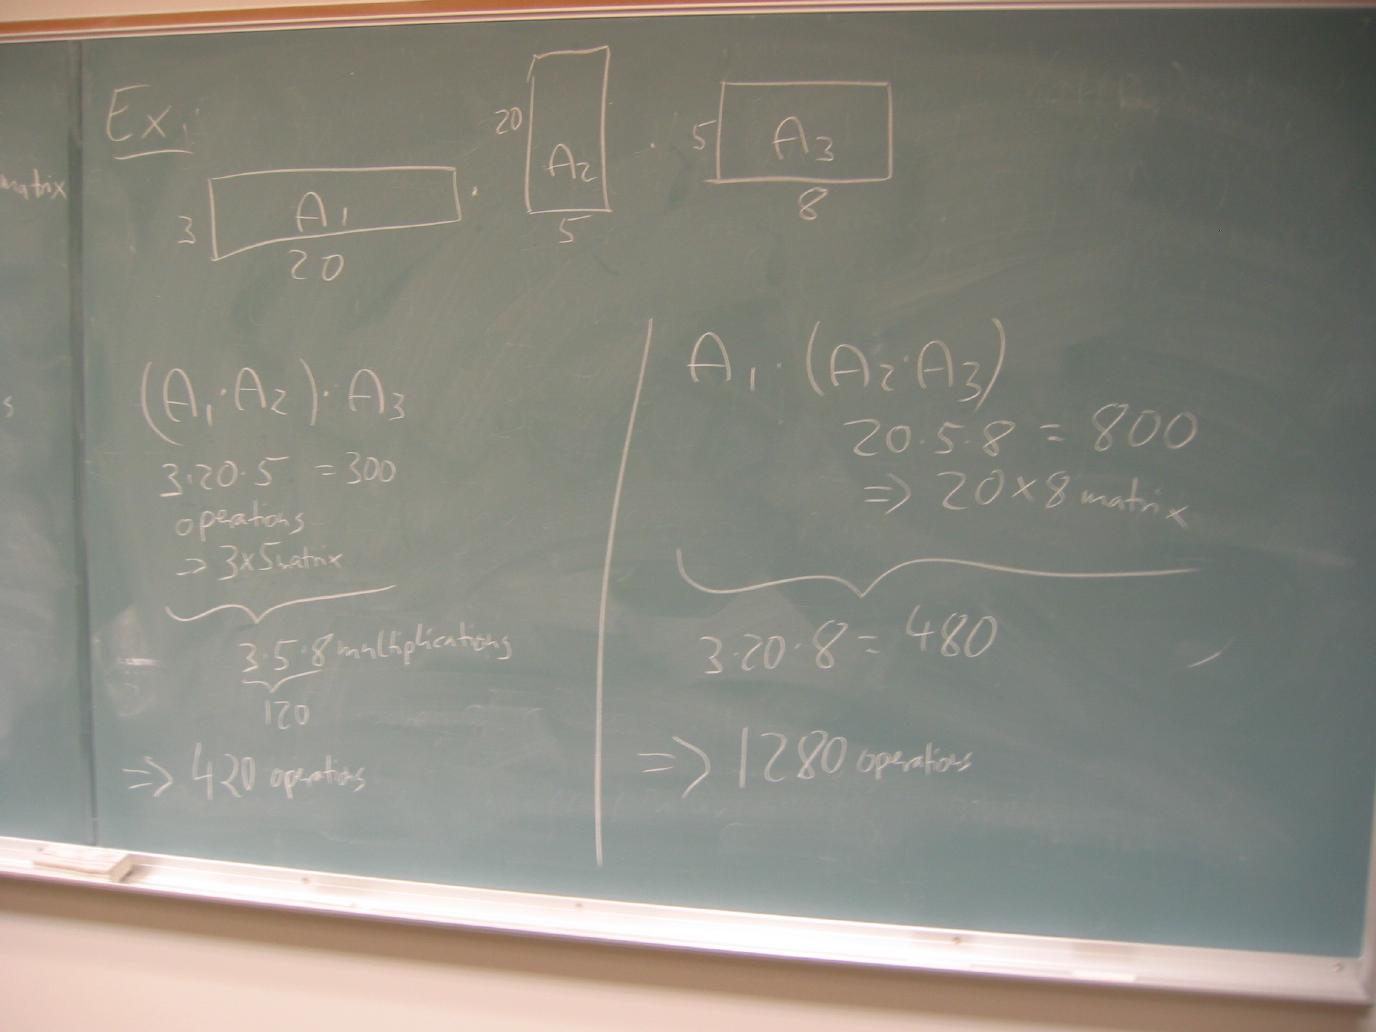 matrix
s
Ex:
3 A₁ 20 · 20 A₂ 5 · 5 A₃ 8
(A₁·A₂)·A₃
3·20·5 = 300
operations
→ 3×5 matrix
3·5·8 multiplications
120
⇒ 420 operations
A₁·(A₂·A₃)
20·5·8 = 800
⇒ 20×8 matrix
3·20·8 = 480
⇒ 1280 operations